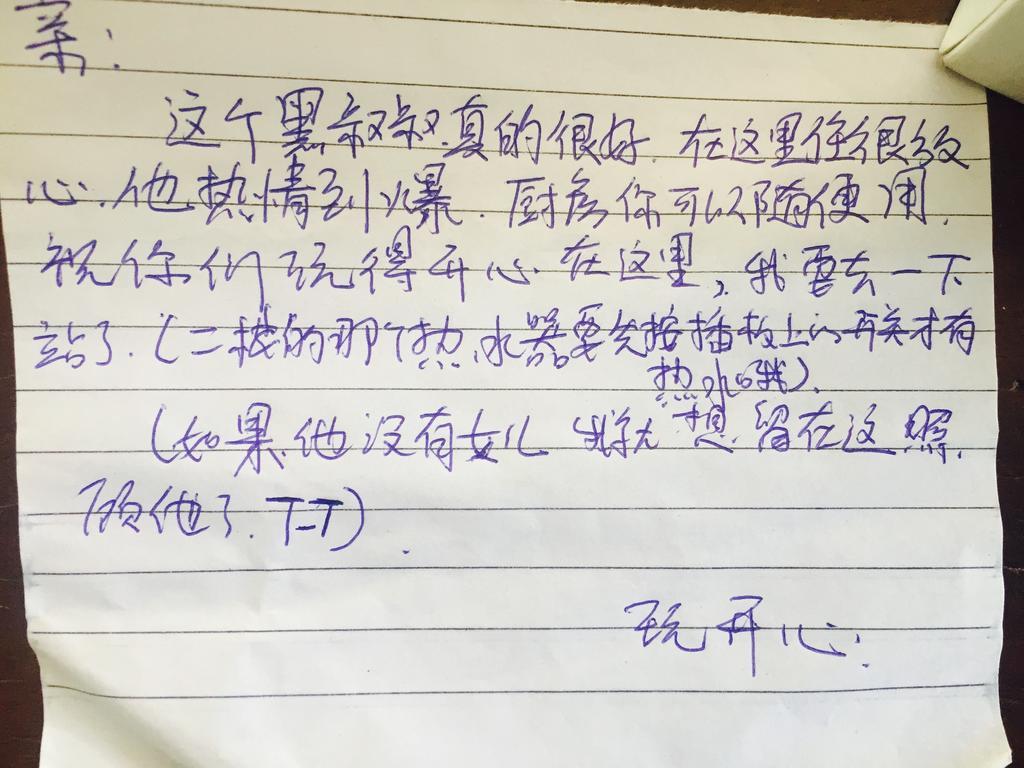 亲:
这个黑叔叔真的很好.在这里住很放
心.他热情到爆.厨房你可以随便用.
祝你们玩得开心在这里,我要去一下
站了.(二楼的那个热水器要先按插板上的开关才有
热水哦).
(如果他没有女儿 我就想留在这照
顾他了.T-T).
玩开心: